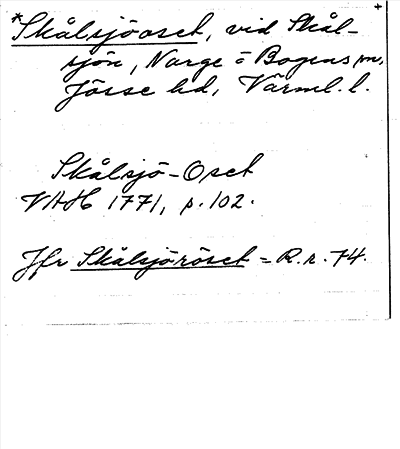 *Skålsjöoset, vid Skål-
sjön, Norge o Bogens sn,
Jösse hd, Värml. l.
Skålsjö-Oset
VAH 1771, p. 102.
Jfr Skålsjöröset = R.r. 74.